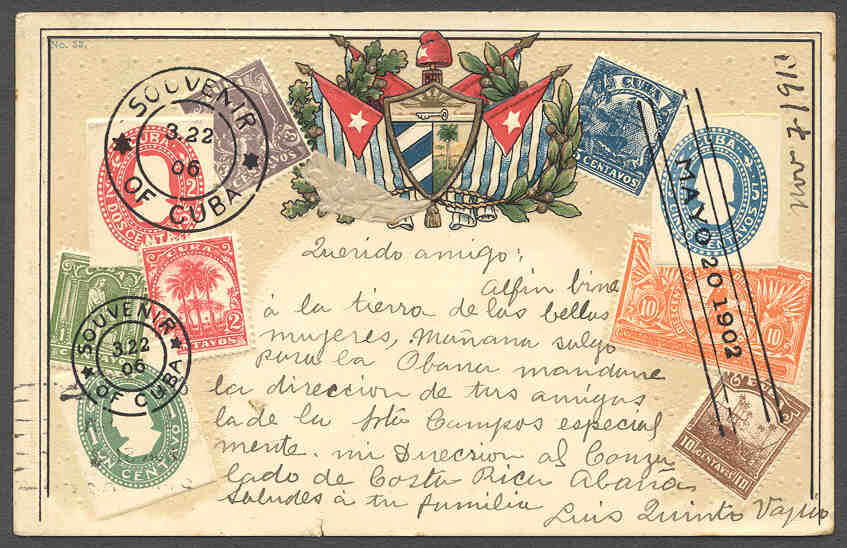 No. 33.
SOUVENIR OF CUBA
3.22
06
CUBA
2 2
DOS CENTAVOS
3
CENTAVOS
CUBA
CENTAVOS
CUBA
5
CENTAVOS
MAYO 20 1902
Nov 7 1910
CUBA
2 2
CENTAVOS
SOUVENIR OF CUBA
3.22
06
1
UN CENTAVO
10 10
10 CENTAVOS 10
Querido amigo;
Alfin bine
á la tierra de las bellas
mujeres, Mañana salgo
para la Obana mandame
la direccion de tus amigas
la de la Campos especial
mente. mi Direcsion al Consu
lado de Costa Rica Abana
Saludes á tu familia
Luis Quinto